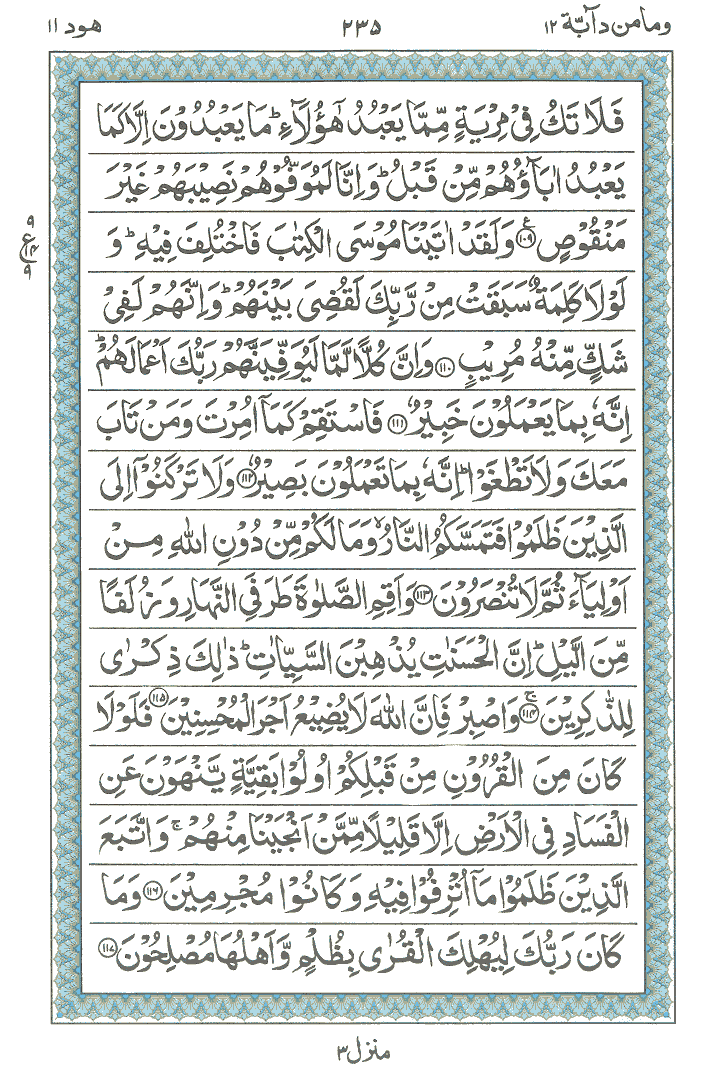 وما من دآبة ١٢ ٢٣٥ هود ١١
فَلَا تَكُ فِيْ مِرْيَةٍ مِّمَّا يَعْبُدُ هٰٓؤُلَآءِ ؕ مَا يَعْبُدُوْنَ اِلَّا كَمَا
يَعْبُدُ اٰبَآؤُهُمْ مِّنْ قَبْلُ ؕ وَاِنَّا لَمُوَفُّوْهُمْ نَصِيْبَهُمْ غَيْرَ
مَنْقُوْصٍ ۧ ﴿۱۰۹﴾ وَلَقَدْ اٰتَيْنَا مُوْسَى الْكِتٰبَ فَاخْتُلِفَ فِيْهِ ؕ وَ
٩ ع ١٤ ٩
لَوْلَا كَلِمَةٌ سَبَقَتْ مِنْ رَّبِّكَ لَقُضِيَ بَيْنَهُمْ ؕ وَاِنَّهُمْ لَفِيْ
شَكٍّ مِّنْهُ مُرِيْبٍ ﴿۱۱۰﴾ وَاِنَّ كُلًّا لَّمَّا لَيُوَفِّيَنَّهُمْ رَبُّكَ اَعْمَالَهُمْ ؕ
اِنَّهٗ بِمَا يَعْمَلُوْنَ خَبِيْرٌ ﴿۱۱۱﴾ فَاسْتَقِمْ كَمَآ اُمِرْتَ وَمَنْ تَابَ
مَعَكَ وَلَا تَطْغَوْا ؕ اِنَّهٗ بِمَا تَعْمَلُوْنَ بَصِيْرٌ ﴿۱۱۲﴾ وَلَا تَرْكَنُوْٓا اِلَى
الَّذِيْنَ ظَلَمُوْا فَتَمَسَّكُمُ النَّارُ ۙ وَمَا لَكُمْ مِّنْ دُوْنِ اللّٰهِ مِنْ
اَوْلِيَآءَ ثُمَّ لَا تُنْصَرُوْنَ ﴿۱۱۳﴾ وَاَقِمِ الصَّلٰوةَ طَرَفَيِ النَّهَارِ وَزُلَفًا
مِّنَ الَّيْلِ ؕ اِنَّ الْحَسَنٰتِ يُذْهِبْنَ السَّيِّاٰتِ ؕ ذٰلِكَ ذِكْرٰى
لِلذّٰكِرِيْنَ ۚ ﴿۱۱۴﴾ وَاصْبِرْ فَاِنَّ اللّٰهَ لَا يُضِيْعُ اَجْرَ الْمُحْسِنِيْنَ ﴿۱۱۵﴾ فَلَوْلَا
كَانَ مِنَ الْقُرُوْنِ مِنْ قَبْلِكُمْ اُولُوْا بَقِيَّةٍ يَّنْهَوْنَ عَنِ
الْفَسَادِ فِي الْاَرْضِ اِلَّا قَلِيْلًا مِّمَّنْ اَنْجَيْنَا مِنْهُمْ ۚ وَاتَّبَعَ
الَّذِيْنَ ظَلَمُوْا مَآ اُتْرِفُوْا فِيْهِ وَكَانُوْا مُجْرِمِيْنَ ﴿۱۱۶﴾ وَمَا
كَانَ رَبُّكَ لِيُهْلِكَ الْقُرٰى بِظُلْمٍ وَّاَهْلُهَا مُصْلِحُوْنَ ﴿۱۱۷﴾
منزل ٣